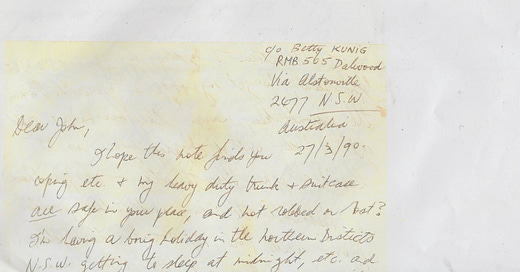 c/o Betty KUNIG
RMB 505 Dalwood
Via Alstonville
2477 N.S.W
Australia
27/3/90.
Dear John,
I hope this note finds you
coping etc. & my heavy duty trunk & suitcase
are safe in your place, and not robbed or lost?
I'm having a boring holiday in the northern Districts
N.S.W. getting to sleep at midnight, etc.